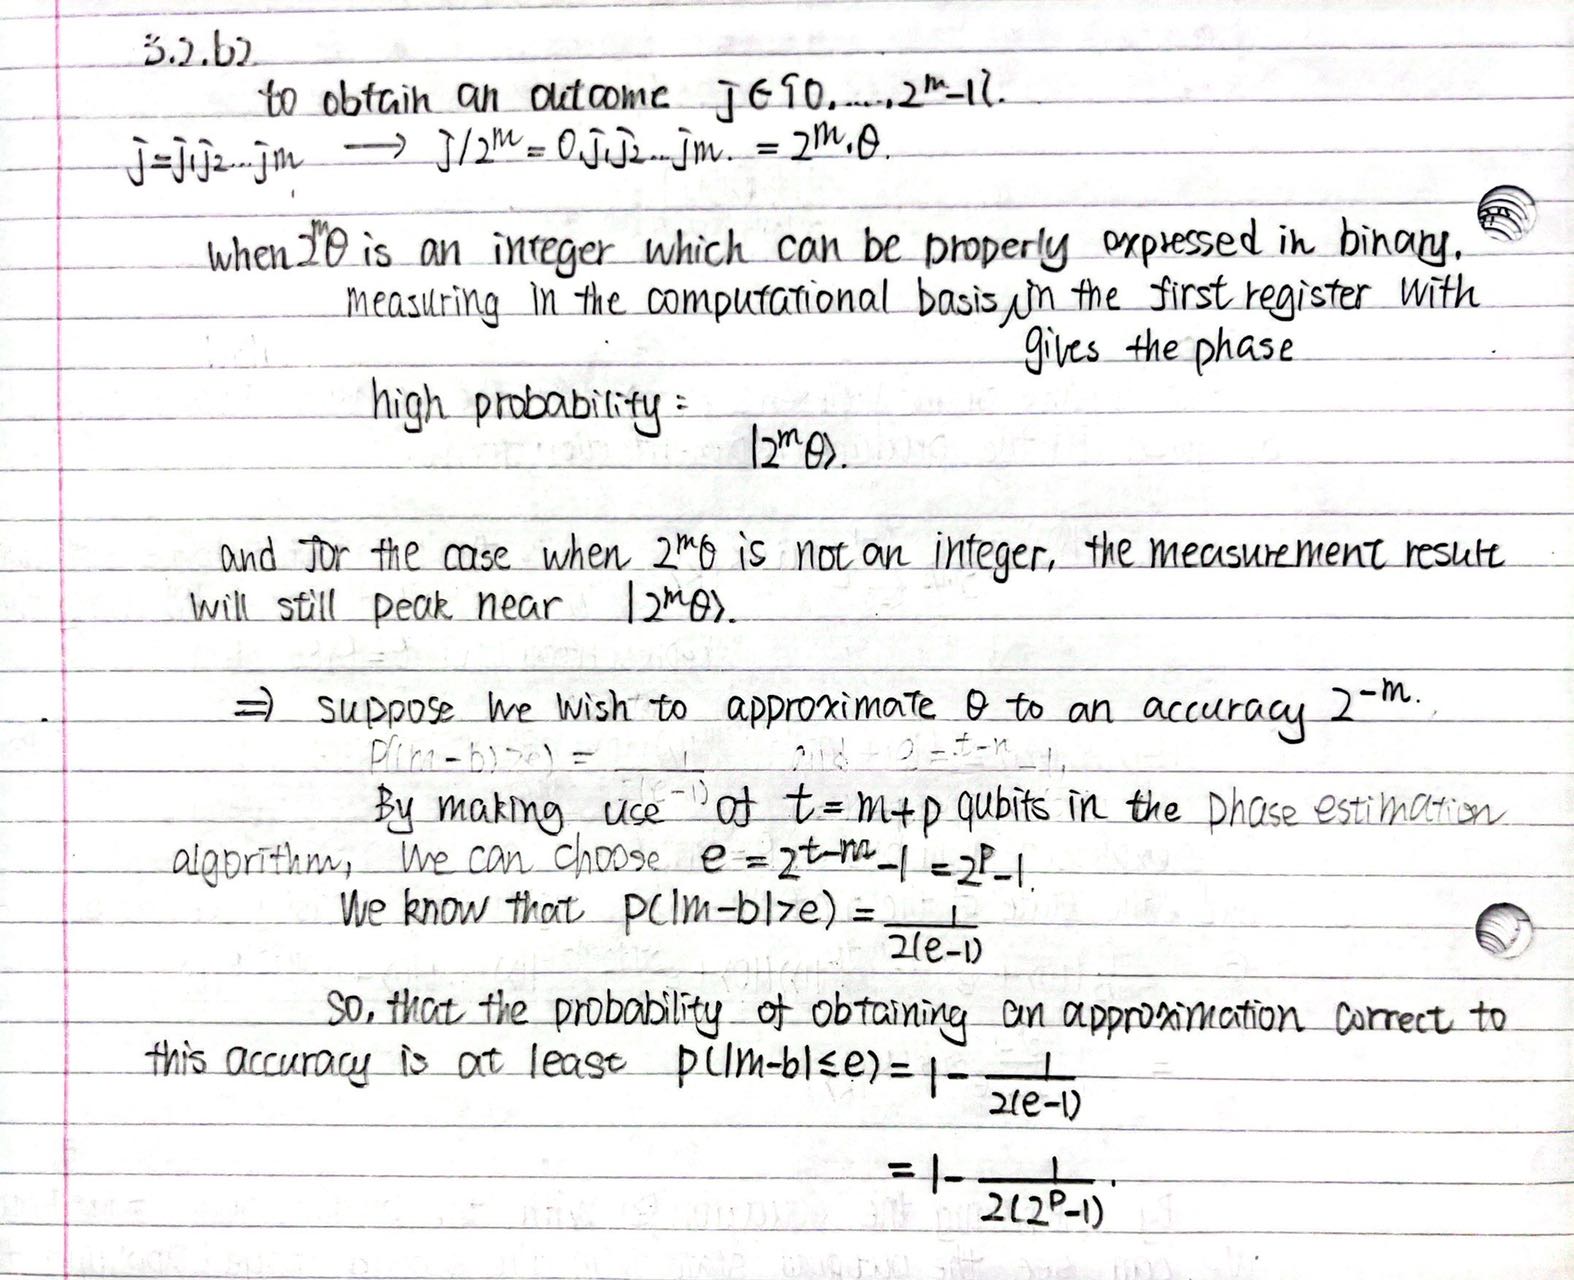 3.2.b2
to obtain an outcome j∈{0,....,2^m-1}.
j=j₁j₂...jm ⟶ j/2^m = 0.j₁j₂...jm. = 2^m.θ.
when 2^mθ is an integer which can be properly expressed in binary.
measuring in the computational basis, in the first register with
gives the phase
high probability:
|2^mθ⟩.
and for the case when 2^mθ is not an integer, the measurement result
will still peak near |2^mθ⟩.
⇒ suppose we wish to approximate θ to an accuracy 2^-m.
By making use of t=m+p qubits in the phase estimation
algorithm, we can choose e = 2^(t-m)-1 = 2^p-1.
We know that p(|m-b|>e) = 1/(2(e-1))
so, that the probability of obtaining an approximation correct to
this accuracy is at least p(|m-b|≤e) = 1 - 1/(2(e-1))
= 1 - 1/(2(2^p-1)).